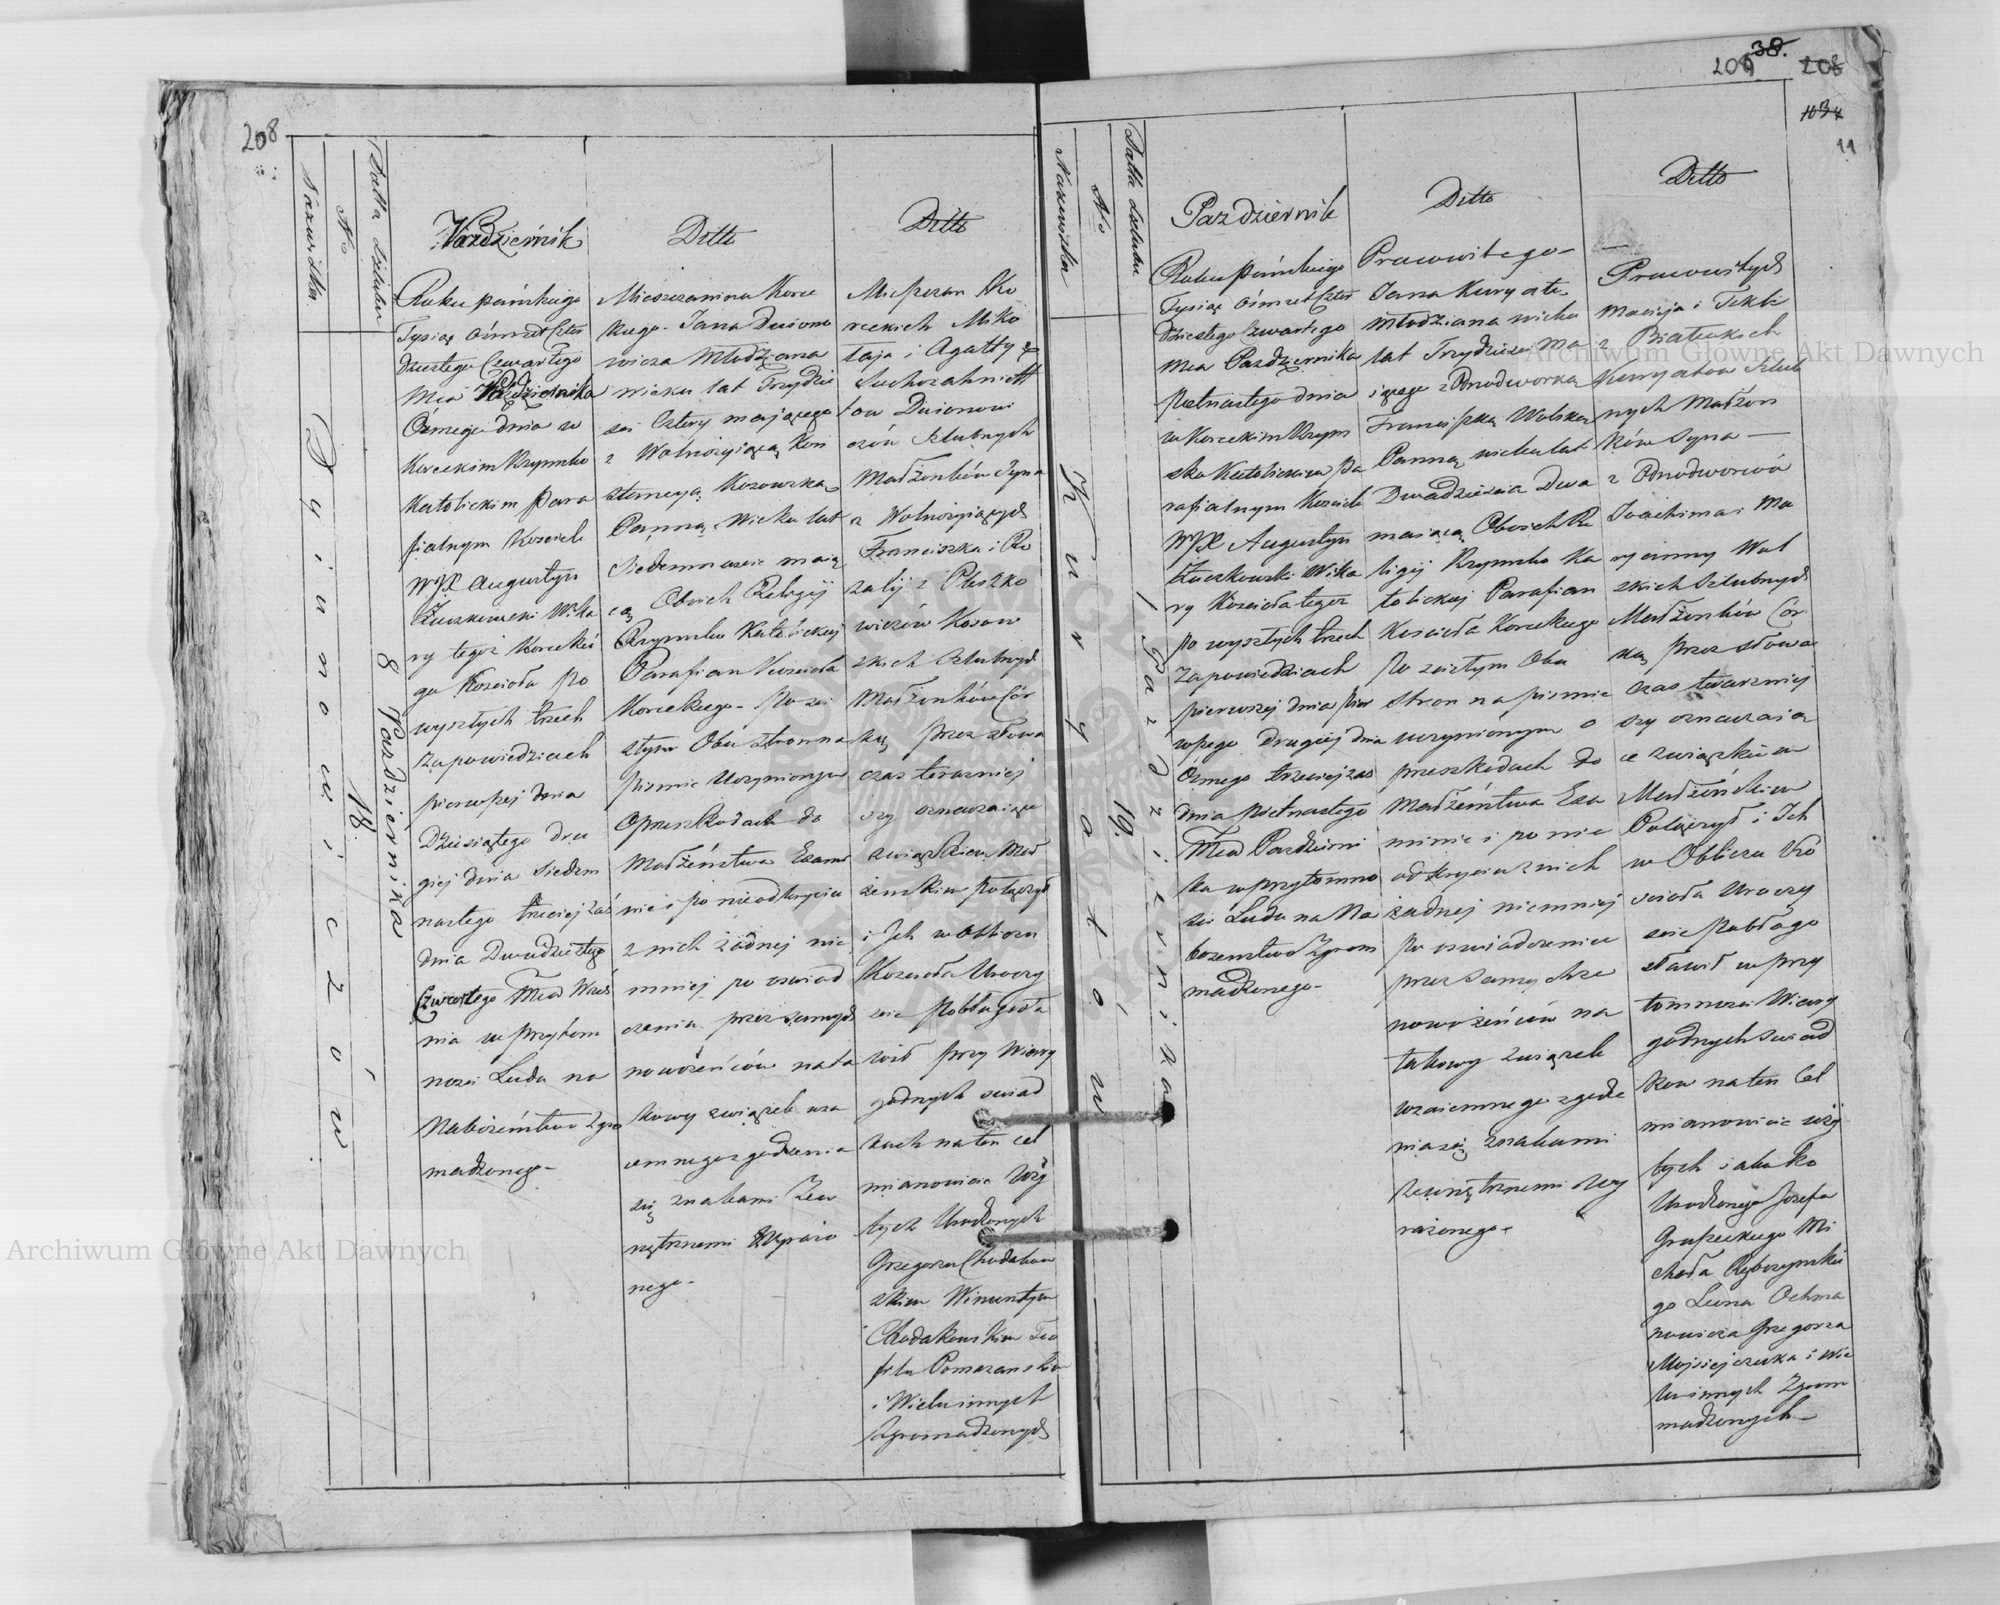 208
Nazwiska
No
Data szlubu
Dyiunowiczów
18.
8 Października
Październik
Roku pańskiego
Tysiąc óśmset Czter
dziestego Czwartego
Mca Października
Ósmego dnia w
Koreckim Rzymsko
Katolickim Para
fialnym Kosciele
WJX Augustyn
Żuczkowski Wika
ry tegoż Koreckie
go Kościoła po
wyszłych trzech
zapowiedziach
pierwszej dnia
Dziesiątego dru
giej dnia Siedem
nastego trzeciej zaś
dnia Dwudziestego
Czwartego Mca Wrześ
nia w przytom
nosci Ludu na
Nabożeństwo Zgro
madzonego-
Ditto
Mieszczanina Korec
kiego- Jana Duiono
wicza Młodziana
wieku lat Trzydzie
sci Cztery mającego
z Wolnożyiącą Kon
stancyą Kosowską
Panną Wieku lat
Siedemnascie maią
cą Oboich Religij
Rzymsko Katolickiej
Parafian Kościoła
Koreckiego- Po zai
stym Obu stron na
pismie Uczynionym
o przeszkodach do
Małżeństwa Exami
nie i po nieodkryciu
z nich żadnej nie
mniej po oswiad
czeniu przez samych
nowożeńców na ta
kowy związek wza
iemnego zgodzenia
się znakami Zew
nętrznemi Wyrażo
nego-
Ditto
Mieszczan Ko
reckich Miko
łaja i Agatty z
Suchozahnett
tow Duionowi
czów Szlubnych
Małżonków Syna
z Wolnożyiących
Franciszka i Ro
zalij z Pleszko
wiczów Kosow
skich Szlubnych
Małżonków Cór
ką przez słowa
czas teraźniej
szy oznaczaiące
związkiem Mał
żenskim Połączył
i Ich w Obliczu
Kościoła Uroczy
scie Pobłogosła
wił przy Wiary
godnych swiad
kach na ten cel
mianowicie Uży
tych Urodzonych
Grzegorzu Chodakow
skim Wincentym
Chodakowskim Teo
filu Pomeranskim
i Wielu innych
Zgromadzonych
38.
209 208
1034
11
Nazwiska
No
Data szlubu
Kuryatów
19.
15 Października
Październik
Roku pańskiego
Tysiąc óśmset Czter
dziestego Czwartego
Mca Października
Piętnastego dnia
w Koreckim Rzym
sko Katolickim Pa
rafialnym Kosciele
WJX Augustyn
Żuczkowski Wika
ry Kościoła tegoż
po wyszłych trzech
Zapowiedziach
pierwszej dnia pier
wszego drugiej dnia
Ósmego trzeciej zaś
dnia piętnastego
Mca Październi
ka w przytomno
sci Ludu na Na
bożenstwo Zgrom
madzonego-
Ditto
Pracowitego-
Jana Kuryatę
Młodziana wieku
lat Trzydzieści ma
iącego z Odnodworką
Franciszką Wolską
Panną wieku lat
Dwadzieścia Dwa
maiącą Oboich Re
ligij Rzymsko Ka
tolickiej Parafian
Kościoła Koreckiego
Po zaistym Obu
stron na pismie
uczynionym o
przeszkodach do
Małżeństwa Exa
minie i po nie
odkryciu z nich
żadnej niemniej
po oswiadczeniu
przez samych że
nowożeńców na
takowy związek
wzaiemnego zgodze
nia się znakami
zewnętrznemi wy
rażonego-
Ditto
Pracowitych
Macieja i Tekli
z Białeckich
Kuryatów Szlub
nych Małżon
ków Syna-
z Odnodworców
Joachima i Ma
ryianny Wol
skich Szlubnych
Małżonków Cór
ką przez słowa
czas teraźniej
szy oznaczaią
ce związkiem
Małżeńskim
Połączył i Ich
w Obliczu Ko
scioła Uroczy
scie Pobłogo
sławił w przy
tomnosci Wiary
godnych swiad
kow na ten Cel
mianowicie uży
tych iako to
Urodzonego Jozefa
Grupeckiego Mi
chała Rybczynskie
go Leona Ochma
nowicza Grzegorza
Mojsiejczuka i Wie
lu innych Zgrom
madzonych-
Archiwum Główne Akt Dawnych
Archiwum Główne Akt Dawnych